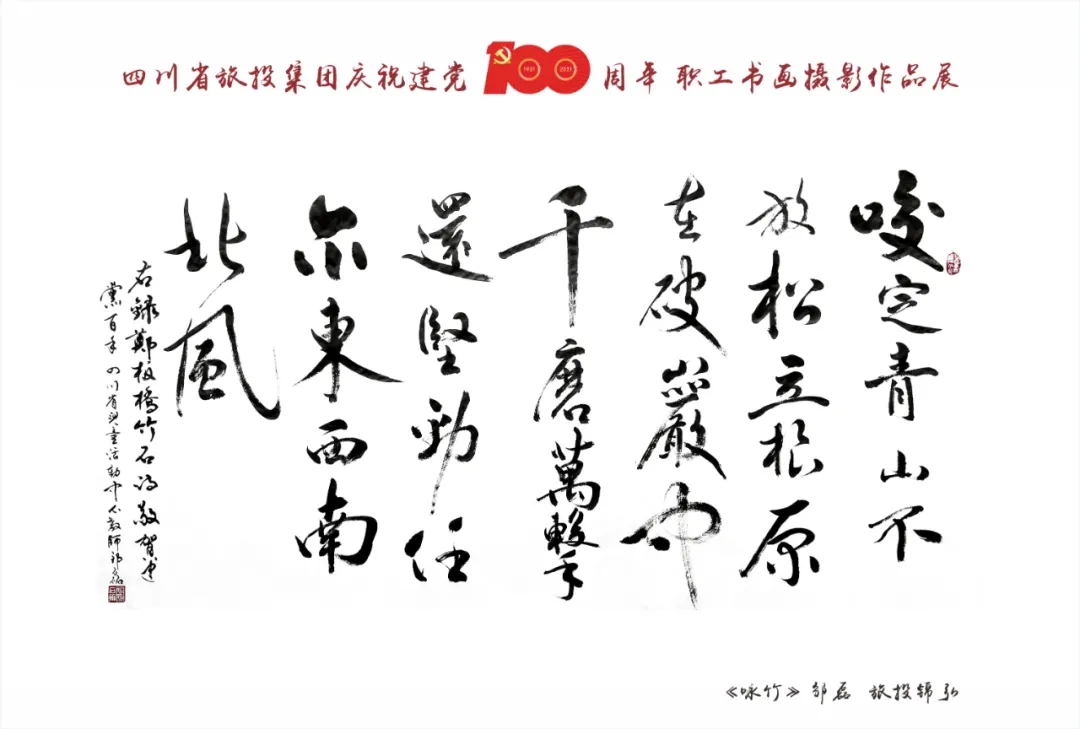 四川省旅投集团庆祝建党100周年 职工书画摄影作品展
1921 2021
咬定青山不
放松立根原
在破巖中
千磨萬擊
還堅勁任
尔東西南
北風
右錄鄭板橋竹石诗敬賀建
黨百年 四川省兒童活動中心教師邹磊
《咏竹》 邹磊 旅投锦弘